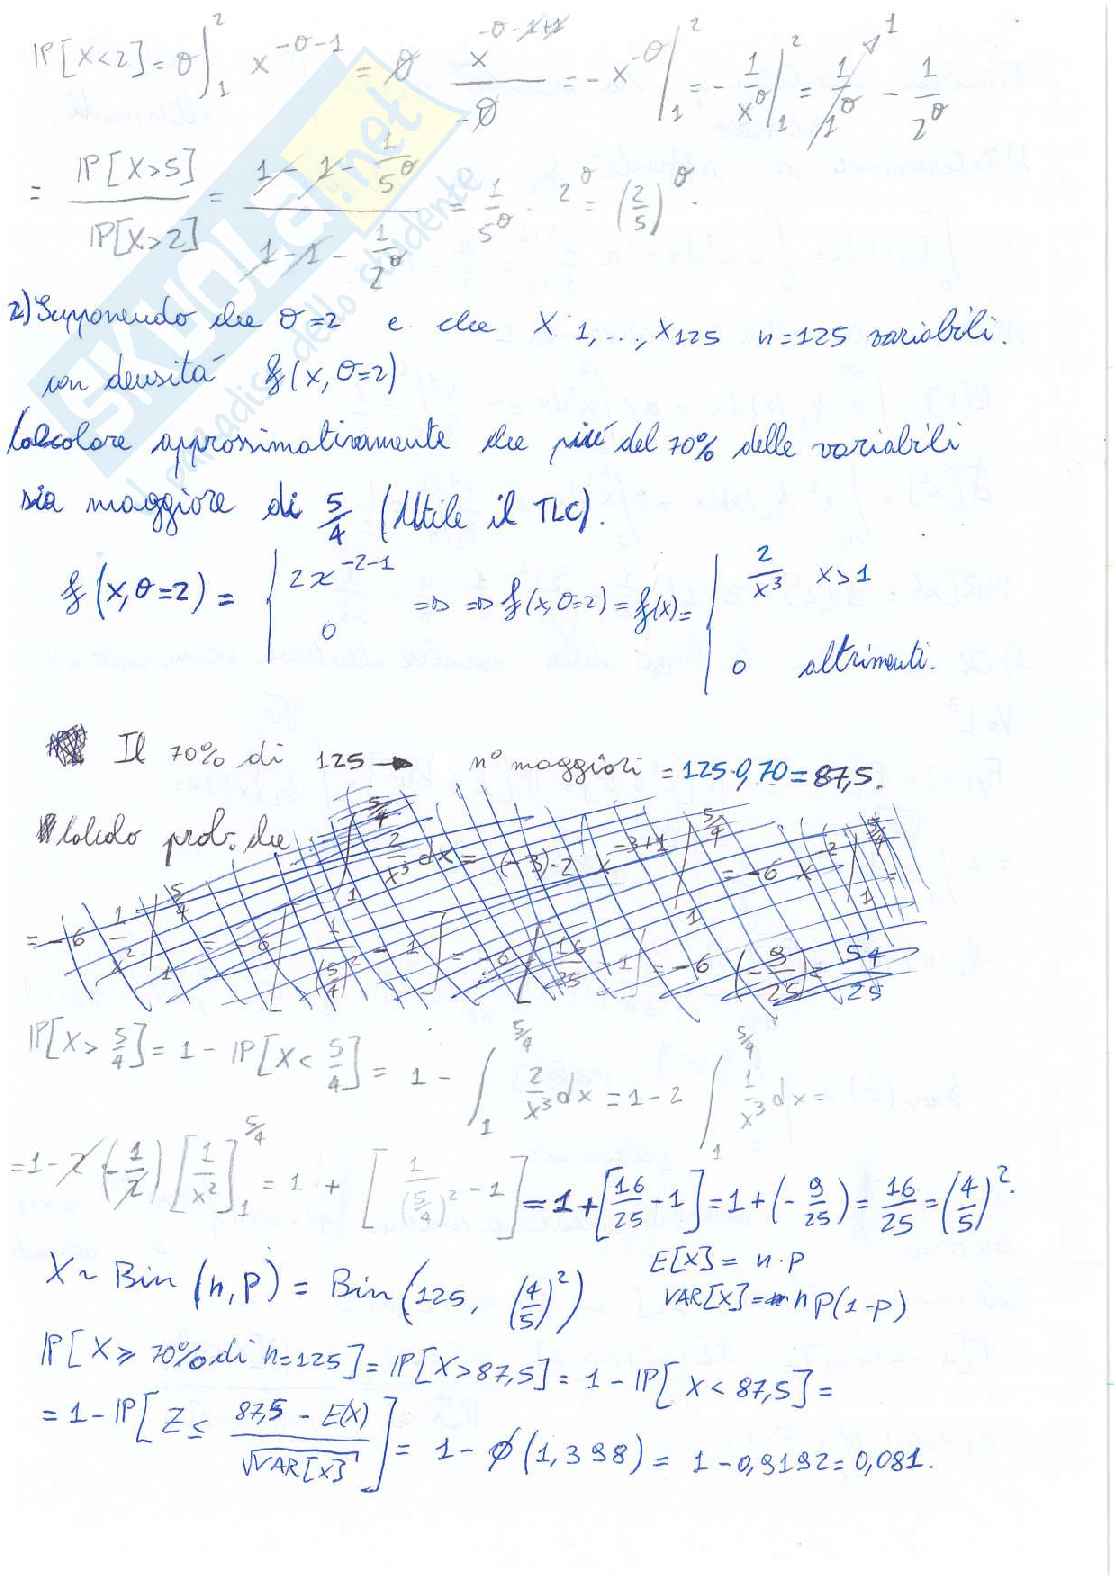 IP[X<2] = θ ∫₁² x^{-θ-1} = θ x^{-θ-1+1}/-θ = -x^{-θ} |₁² = - 1/x^θ |₁² = 1/1^θ - 1/2^θ
= IP[X>5]/IP[X>2] = (1-1-1/5^θ)/(1-1-1/2^θ) = 1/5^θ · 2^θ = (2/5)^θ.
2) Supponendo che θ=2 e che X 1,...,X125 n=125 variabili.
con densitá f(x,θ=2)
Calcolare approssimativamente che piú del 70% delle variabili
sia maggiore di 5/4 (Utile il TLC).
f(x,θ=2) = { 2x^{-2-1} 0 => => f(x,θ=2) = f(x) = { 2/x³ x>1
0 altrimenti.
Il 70% di 125 → n° maggiori = 125·0,70 = 87,5.
Calcolo prob. che
IP[X > 5/4] = 1 - IP[X < 5/4] = 1 - ∫₁^{5/4} 2/x³ dx = 1-2 ∫₁^{5/4} 1/x³ dx =
= 1 - 2 (-1/2) [1/x²]₁^{5/4} = 1 + [1/(5/4)² - 1] = 1 + [16/25 - 1] = 1 + (- 9/25) = 16/25 = (4/5)².
X ~ Bin (n,p) = Bin (125, (4/5)²)
E[X] = n·p
VAR[X] = n p(1-p)
IP[X ≥ 70% di n=125] = IP[X>87,5] = 1 - IP[X < 87,5] =
= 1 - IP[Z ≤ (87,5 - E(X))/√VAR[X]] = 1 - ϕ(1,398) = 1 - 0,9192 = 0,081.
SKUOLA.net
il paradiso dello studente